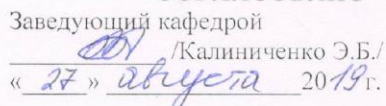 Заведующий кафедрой
/Калиниченко Э.Б./
« 27 » августа 2019г.